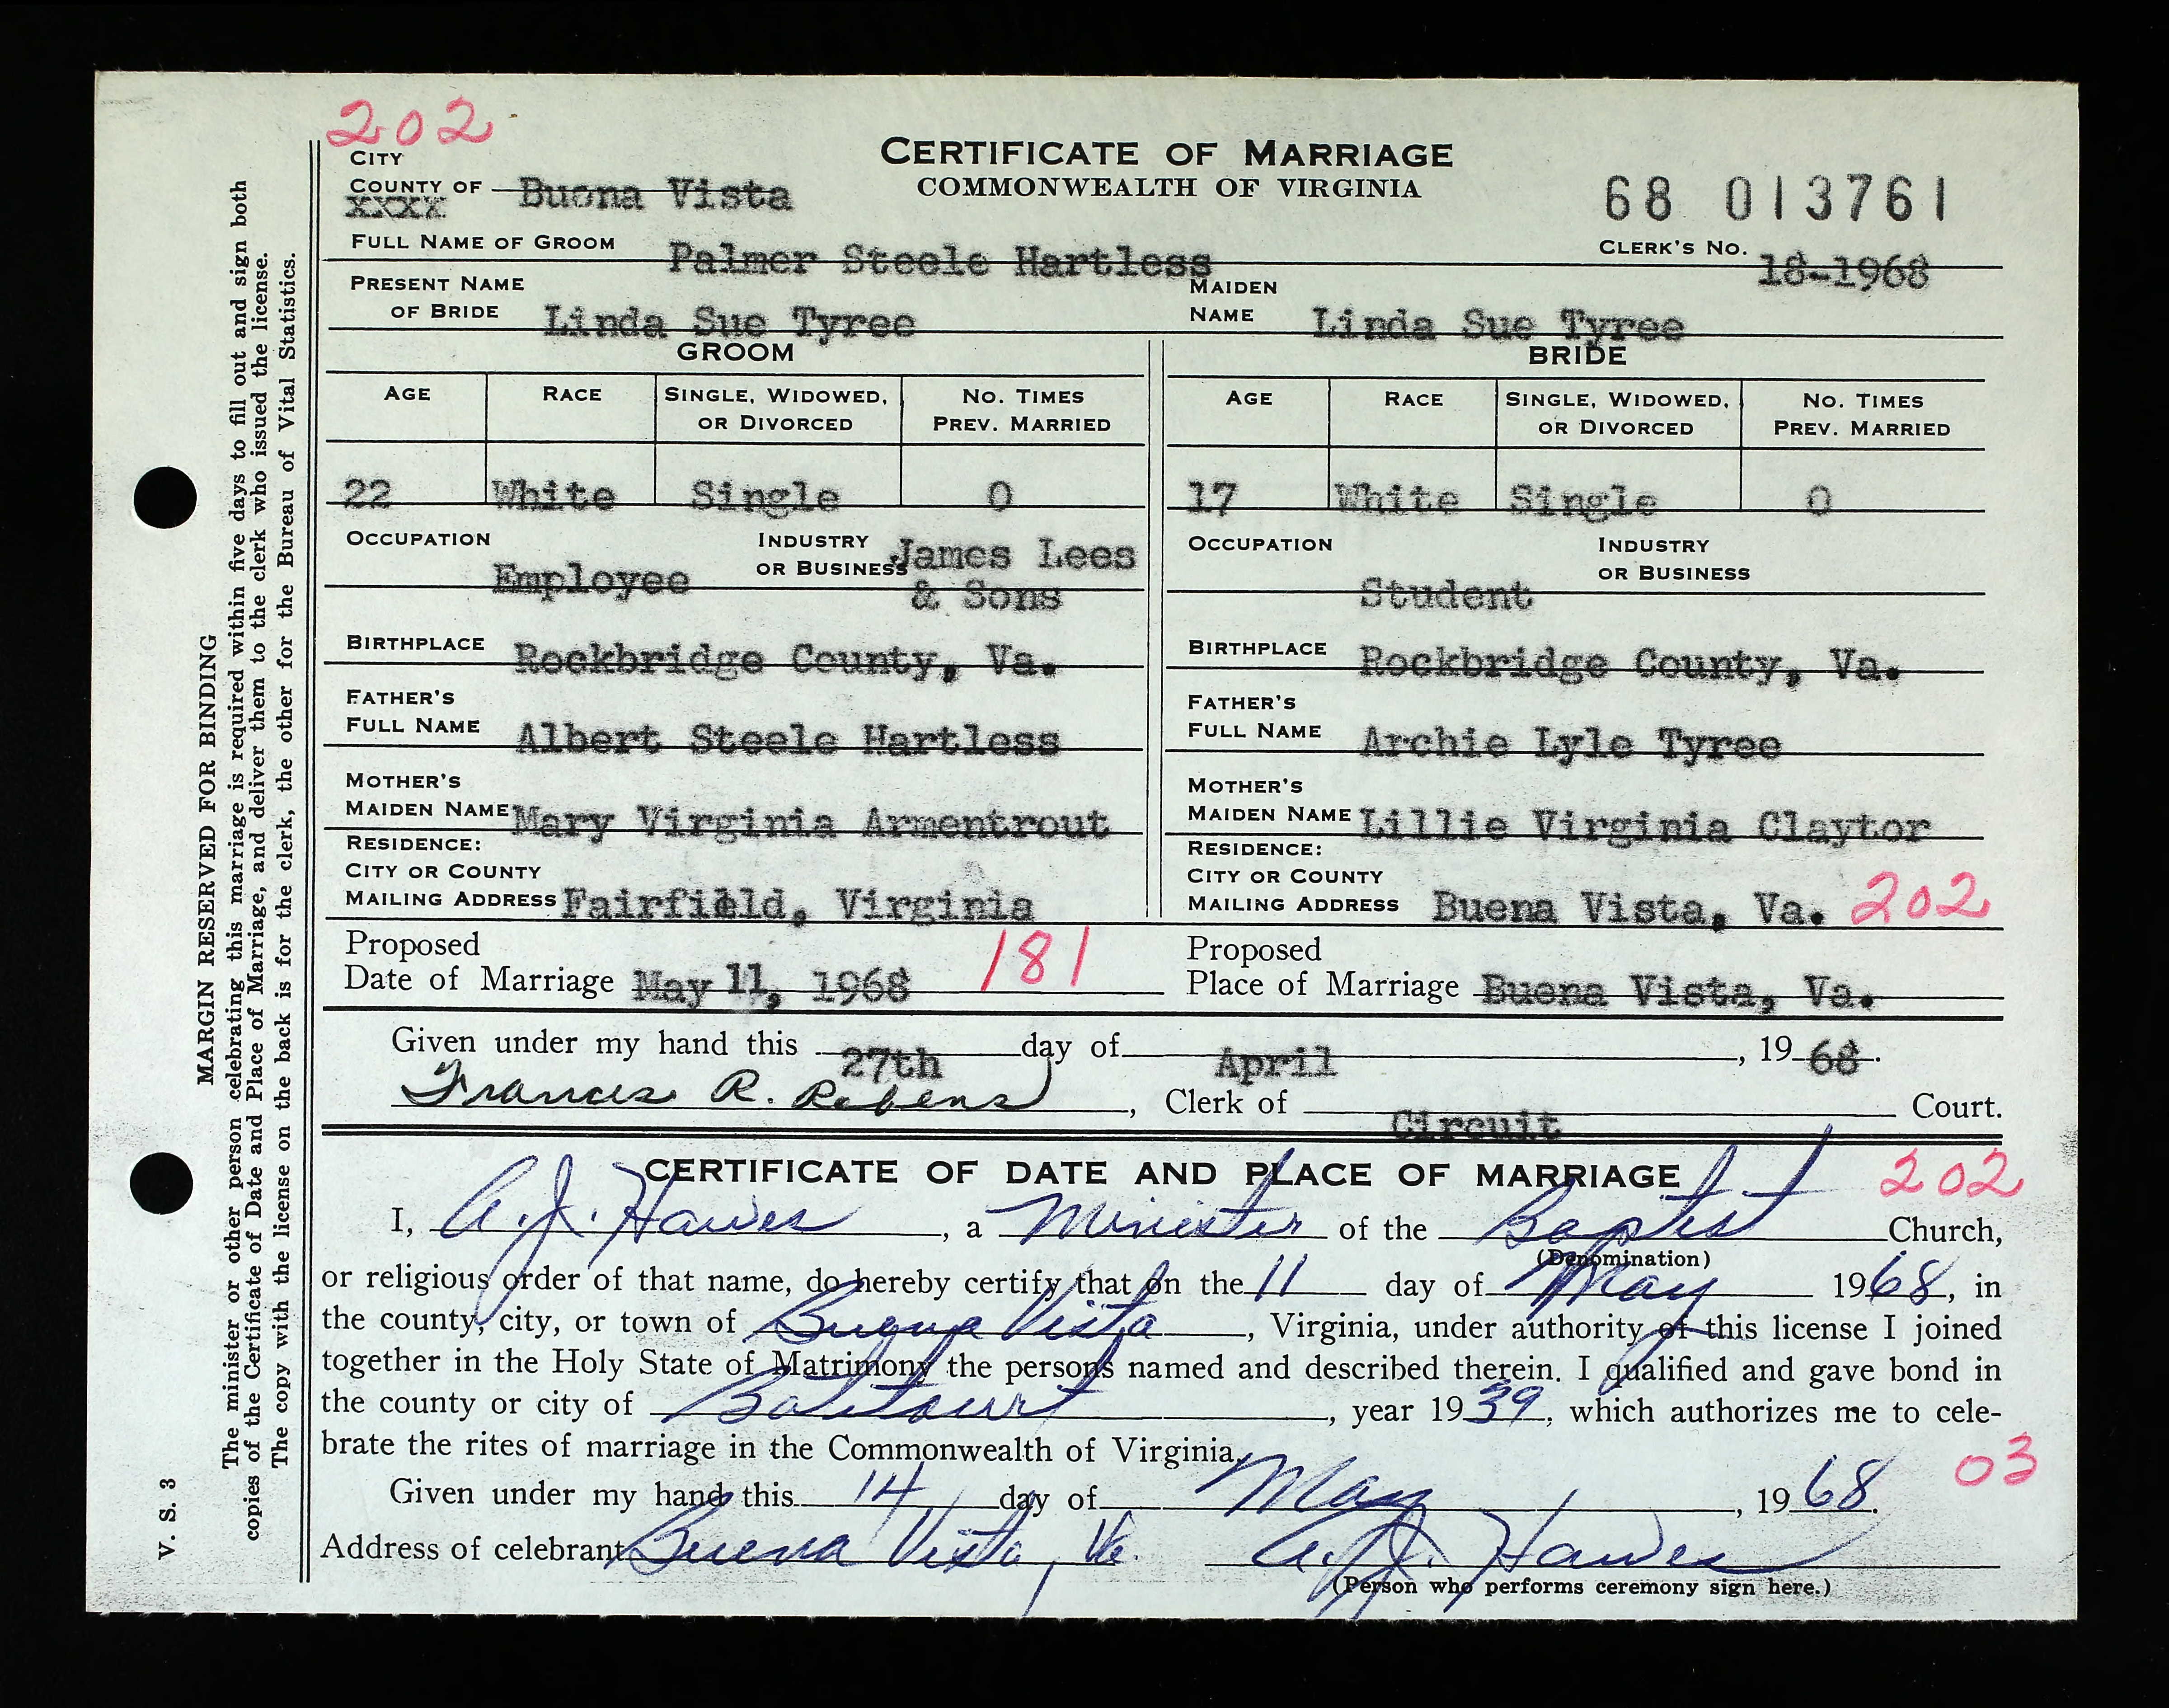 202
CERTIFICATE OF MARRIAGE
COMMONWEALTH OF VIRGINIA
CITY
COUNTY OF Buena Vista
XXXX
68 013761
FULL NAME OF GROOM Palmer Steele Hartless
CLERK'S NO. 18-1968
PRESENT NAME OF BRIDE Linda Sue Tyree
MAIDEN NAME Linda Sue Tyree
GROOM
BRIDE
AGE RACE SINGLE, WIDOWED, OR DIVORCED NO. TIMES PREV. MARRIED
AGE RACE SINGLE, WIDOWED, OR DIVORCED NO. TIMES PREV. MARRIED
22 White Single 0
17 White Single 0
OCCUPATION Employee INDUSTRY OR BUSINESS James Lees & Sons
OCCUPATION Student INDUSTRY OR BUSINESS
BIRTHPLACE Rockbridge County, Va.
BIRTHPLACE Rockbridge County, Va.
FATHER'S FULL NAME Albert Steele Hartless
FATHER'S FULL NAME Archie Lyle Tyree
MOTHER'S MAIDEN NAME Mary Virginia Armentrout
MOTHER'S MAIDEN NAME Lillie Virginia Claytor
RESIDENCE:
CITY OR COUNTY
MAILING ADDRESS Fairfield, Virginia
RESIDENCE:
CITY OR COUNTY
MAILING ADDRESS Buena Vista, Va. 202
Proposed
Date of Marriage May 11, 1968 181
Proposed
Place of Marriage Buena Vista, Va.
Given under my hand this 27th day of April, 19 68.
Frances R. Robens, Clerk of Circuit Court.
CERTIFICATE OF DATE AND PLACE OF MARRIAGE 202
I, A. J. Hawes, a Minister of the Baptist Church,
(Denomination)
or religious order of that name, do hereby certify that on the 11 day of May 1968, in
the county, city, or town of Buena Vista, Virginia, under authority of this license I joined
together in the Holy State of Matrimony the persons named and described therein. I qualified and gave bond in
the county or city of Botetourt, year 1939, which authorizes me to cele-
brate the rites of marriage in the Commonwealth of Virginia.
03
Given under my hand this 14 day of May, 19 68.
Address of celebrant Buena Vista, Va. A. J. Hawes
(Person who performs ceremony sign here.)
MARGIN RESERVED FOR BINDING
The minister or other person celebrating this marriage is required within five days to fill out and sign both
copies of the Certificate of Date and Place of Marriage, and deliver them to the clerk who issued the license.
The copy with the license on the back is for the clerk, the other for the Bureau of Vital Statistics.
V. S. 3